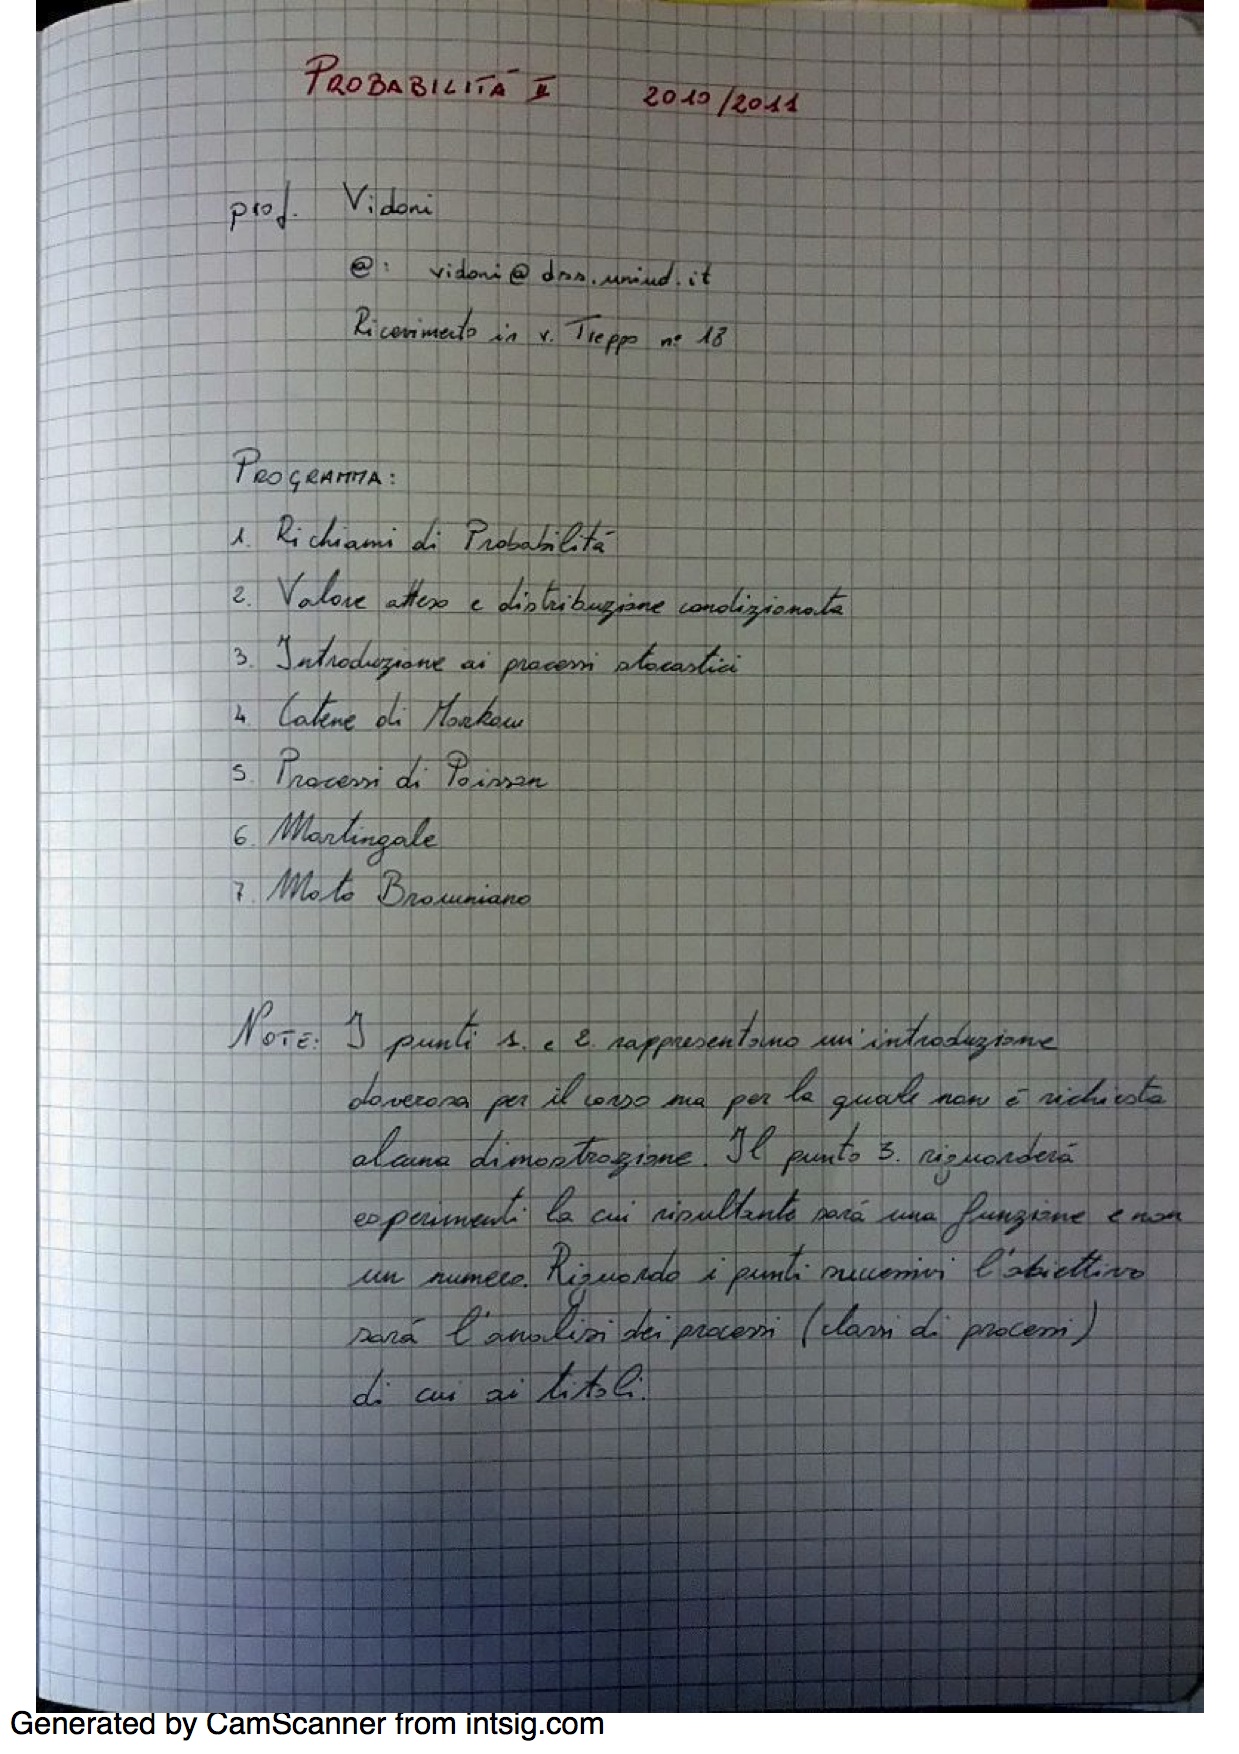 PROBABILITÀ II 2010/2011
prof. Vidoni
@: vidoni@dss.uniud.it
Ricevimento in v. Treppo n° 18
PROGRAMMA:
1. Richiami di Probabilità
2. Valore atteso e distribuzione condizionata
3. Introduzione ai processi stocastici
4. Catene di Markow
5. Processi di Poisson
6. Martingale
7. Moto Browniano
NOTE: I punti 1. e 2. rappresentano un'introduzione
doverosa per il corso ma per la quale non è richiesta
alcuna dimostrazione. Il punto 3. riguarderà
esperimenti la cui risultante sarà una funzione e non
un numero. Riguardo i punti successivi l'obiettivo
sarà l'analisi dei processi (classi di processi)
di cui ai titoli.
Generated by CamScanner from intsig.com